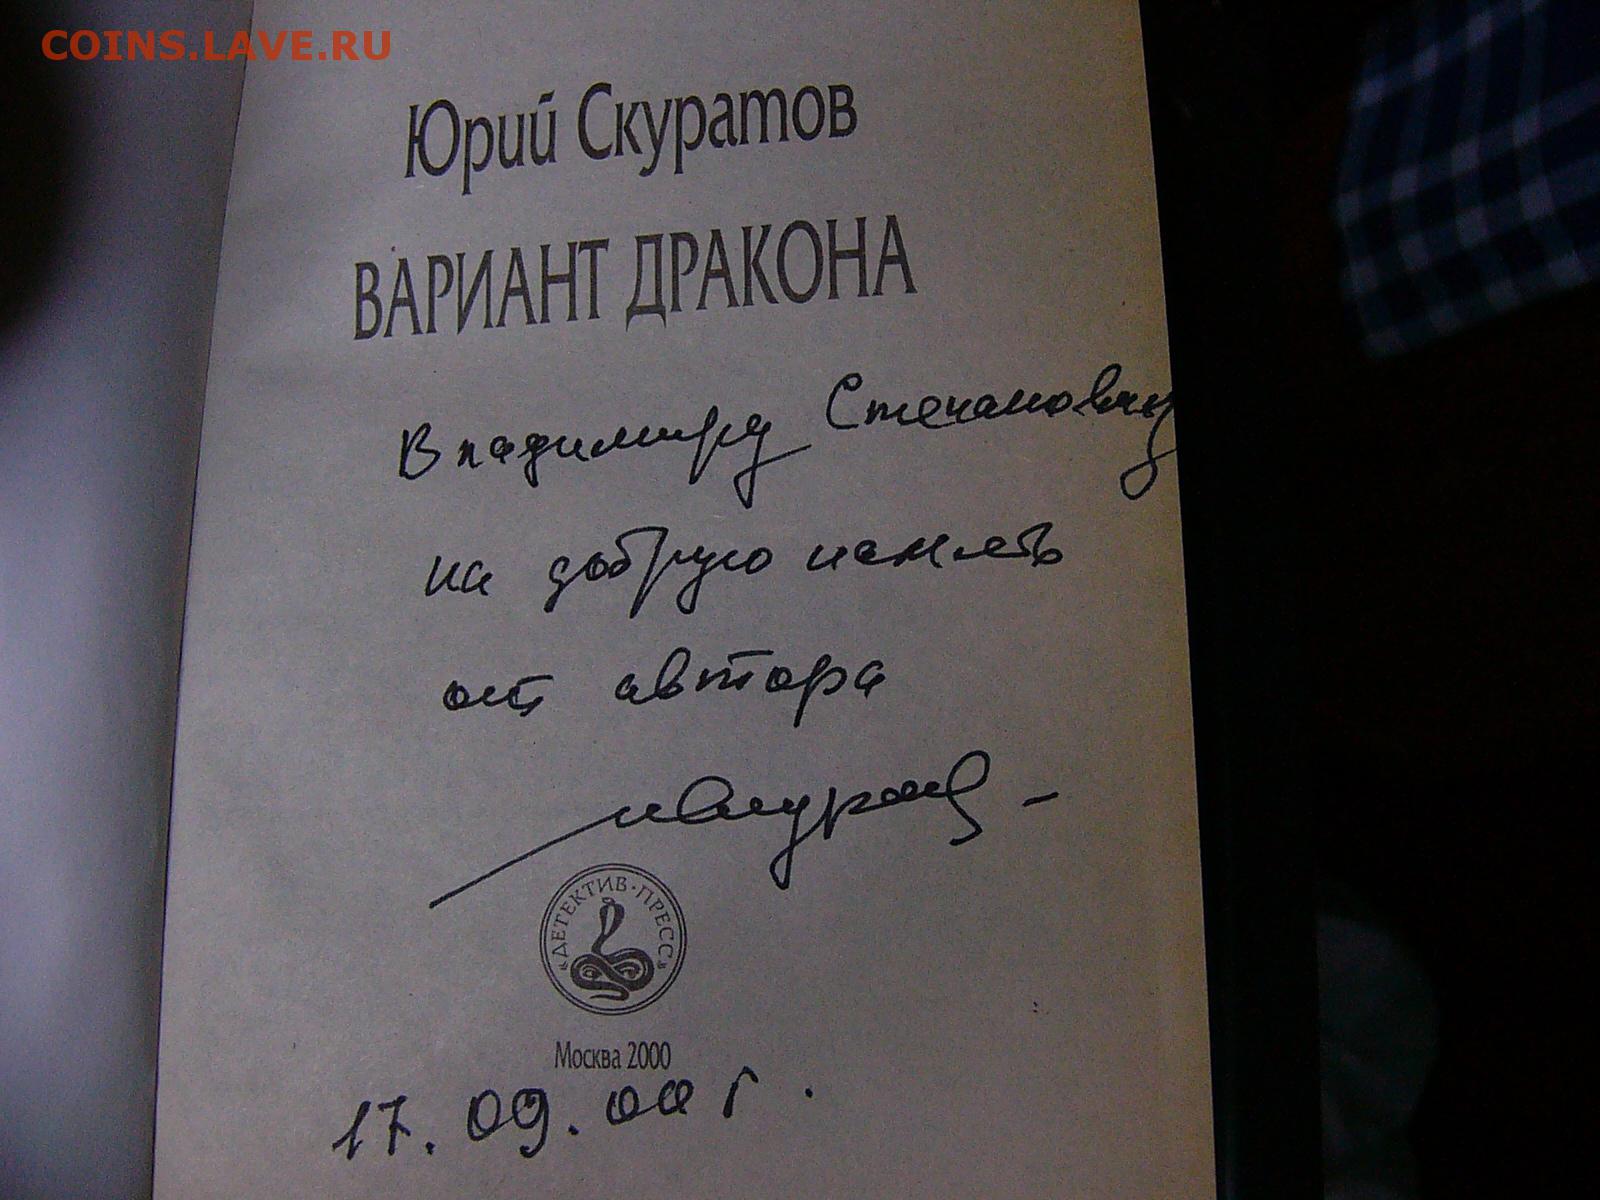 COINS.LAVE.RU
Юрий Скуратов
ВАРИАНТ ДРАКОНА
Владимиру Степановичу
на добрую память
от автора
«ДЕТЕКТИВ·ПРЕСС»
Москва 2000
17.09.00 г.